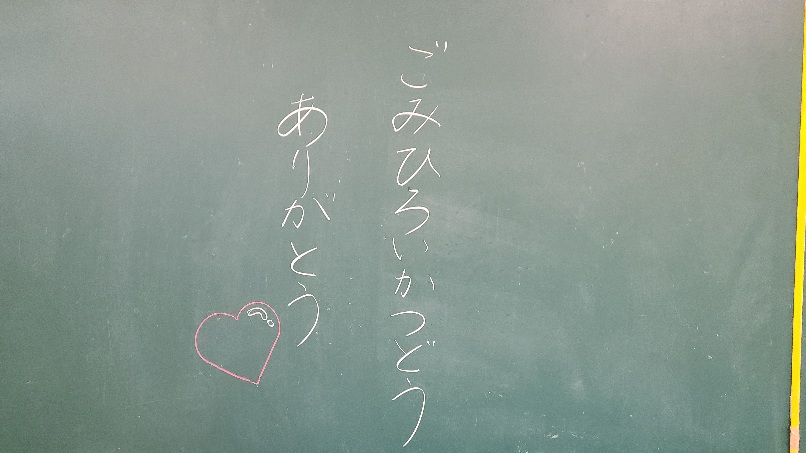 ごみひろいかつどう
ありがとう